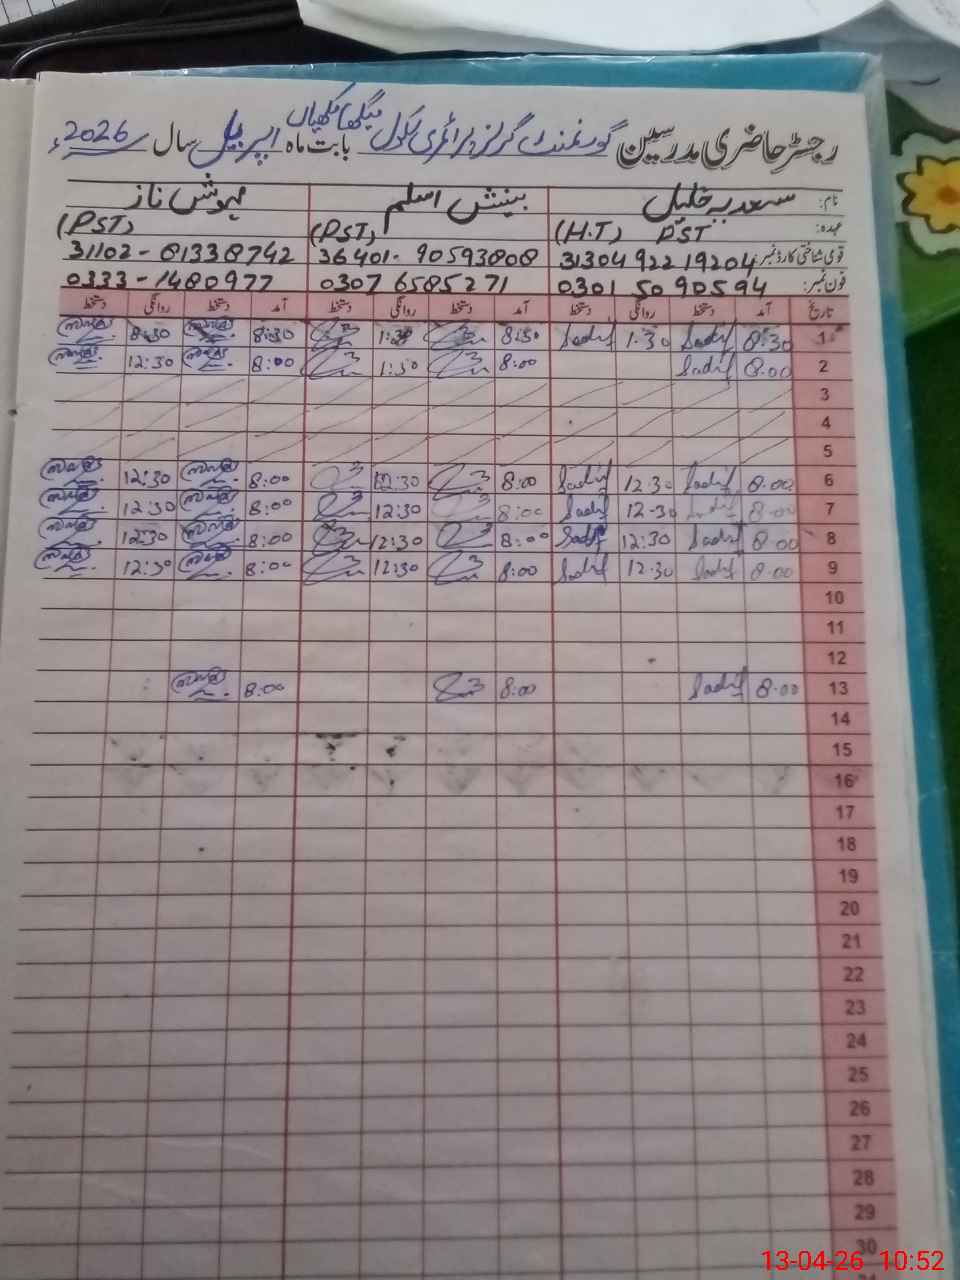 رجسٹر حاضری مدرسین گورنمنٹ گرلز پرائمری سکول میگھا مکھیاں بابت ماہ اپریل سال 2026ء
نام: سعدیہ خلیل بینش اسلم مہوش ناز
عہدہ: (H.T) PST (PST) (PST)
قومی شناختی کارڈ نمبر: 31304 922 19204 36401- 90593808 31102- 81338742
فون نمبر: 0301 50 90594 0307 6585271 0333-1480977
تاریخ آمد دستخط روانگی دستخط آمد دستخط روانگی دستخط آمد دستخط روانگی دستخط
1 8:30 Sadif 1:30 Sadif 8:30 1:30 8:30 8:30
2 8:00 Sadif 8:00 1:30 8:00 12:30
3
4
5
6 8:00 Sadif 12:30 Sadif 8:00 12:30 8:00 12:30
7 8:00 Sadif 12-30 Sadif 8:00 12:30 8:00 12:30
8 8:00 Sadif 12:30 Sadif 8:00 12:30 8:00 12:30
9 8:00 Sadif 12:30 Sadif 8:00 12:30 8:00 12:30
10
11
12
13 8:00 Sadif 8:00 8:00
14
15
16
17
18
19
20
21
22
23
24
25
26
27
28
29
30
13-04-26 10:52